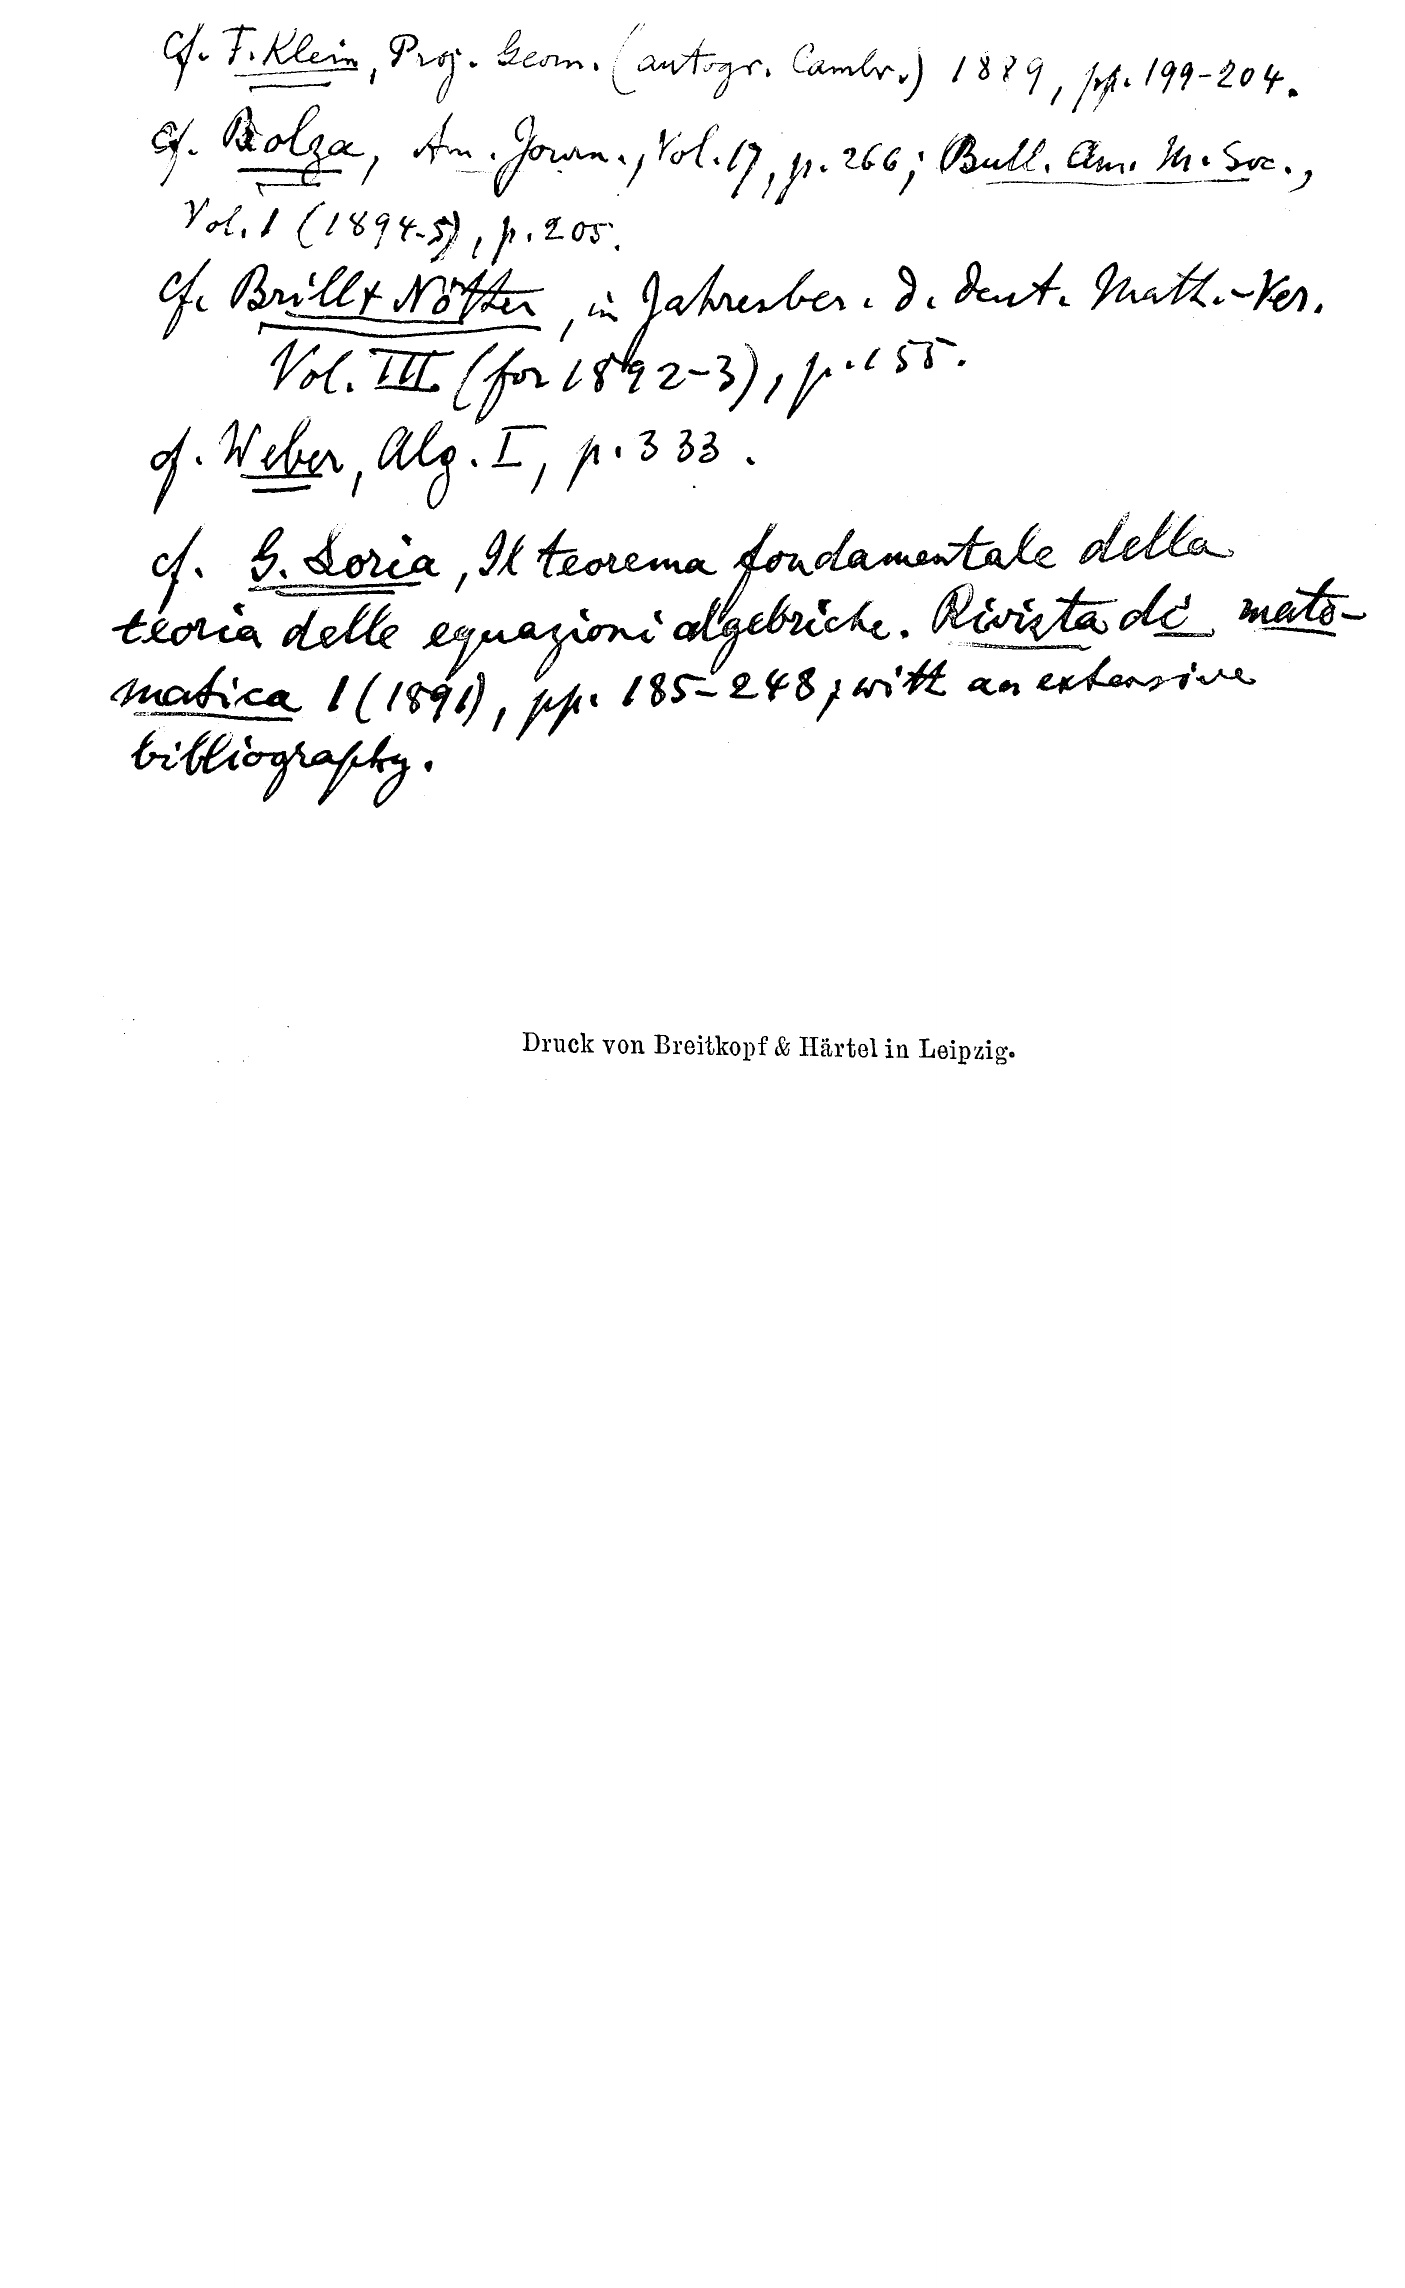 cf. F. Klein, Proj. Geom. (autogr. Cambr.) 1889, pp. 199-204.
cf. Bolza, Am. Journ., Vol. 17, p. 266; Bull. Am. M. Soc.,
Vol. 1 (1894-5), p. 205.
cf. Brill + Nöther, in Jahresber. d. deut. Math.-Ver.
Vol. III (for 1892-3), p. 155.
cf. Weber, Alg. I, p. 333.
cf. G. Loria, Il teorema fondamentale della
teoria delle equazioni algebriche. Rivista di mate-
matica 1 (1891), pp. 185-248; with an extensive
bibliography.
Druck von Breitkopf & Härtel in Leipzig.